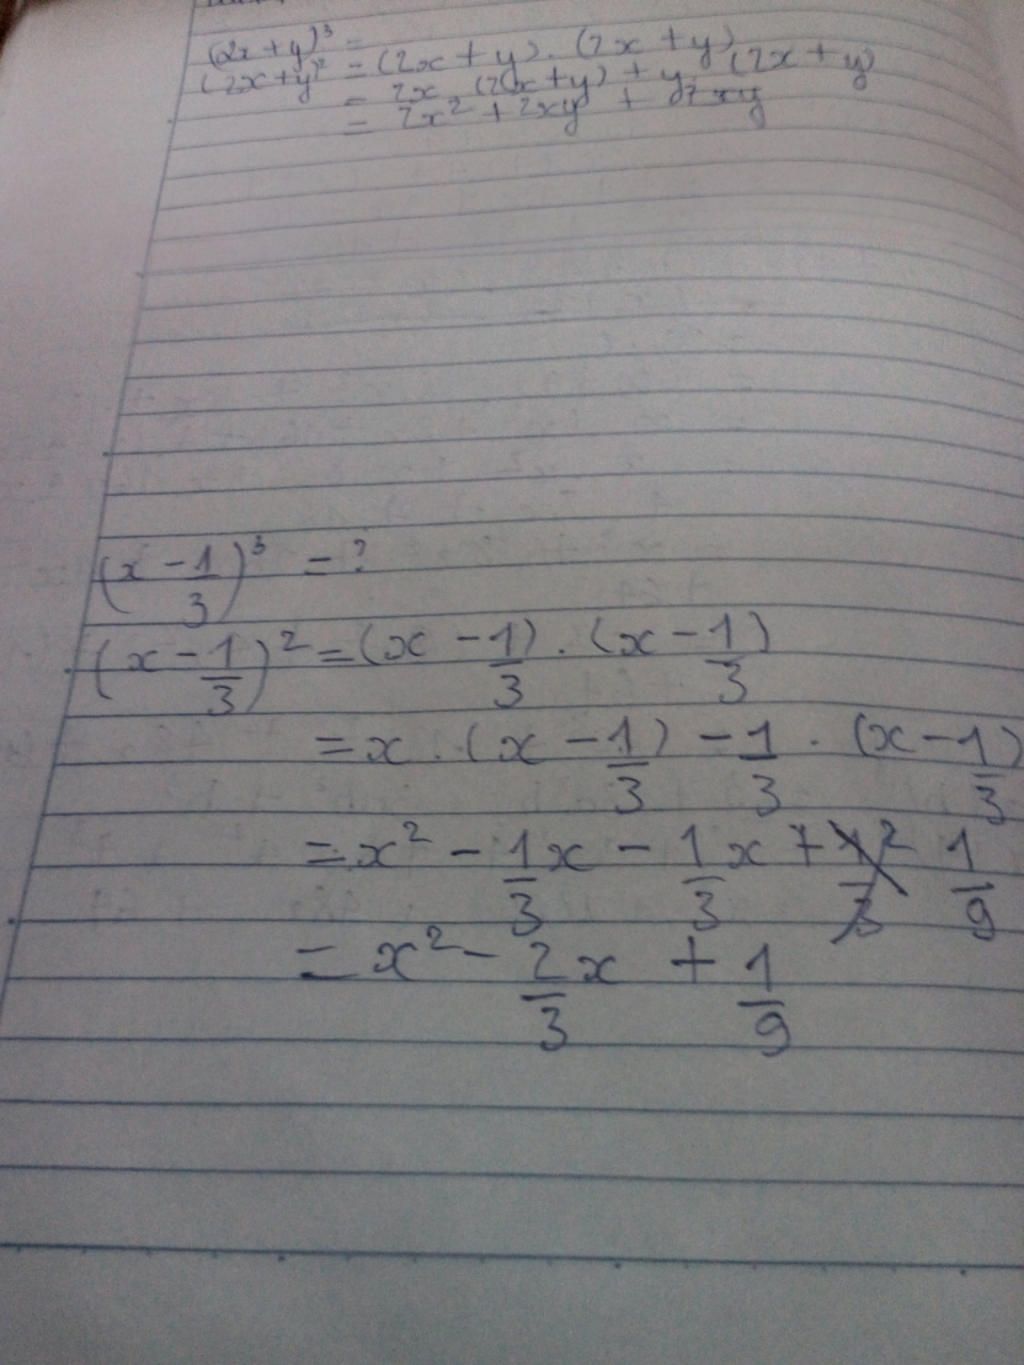 (2x+y)³ =
(2x+y)² = (2x+y).(2x+y)
= 2x.(2x+y) + y.(2x+y)
= 2x² + 2xy +
(x - 1/3)³ = ?
(x - 1/3)² = (x - 1/3) . (x - 1/3)
= x . (x - 1/3) - 1/3 . (x - 1/3)
= x² - 1/3 x - 1/3 x + 1/9
= x² - 2/3 x + 1/9